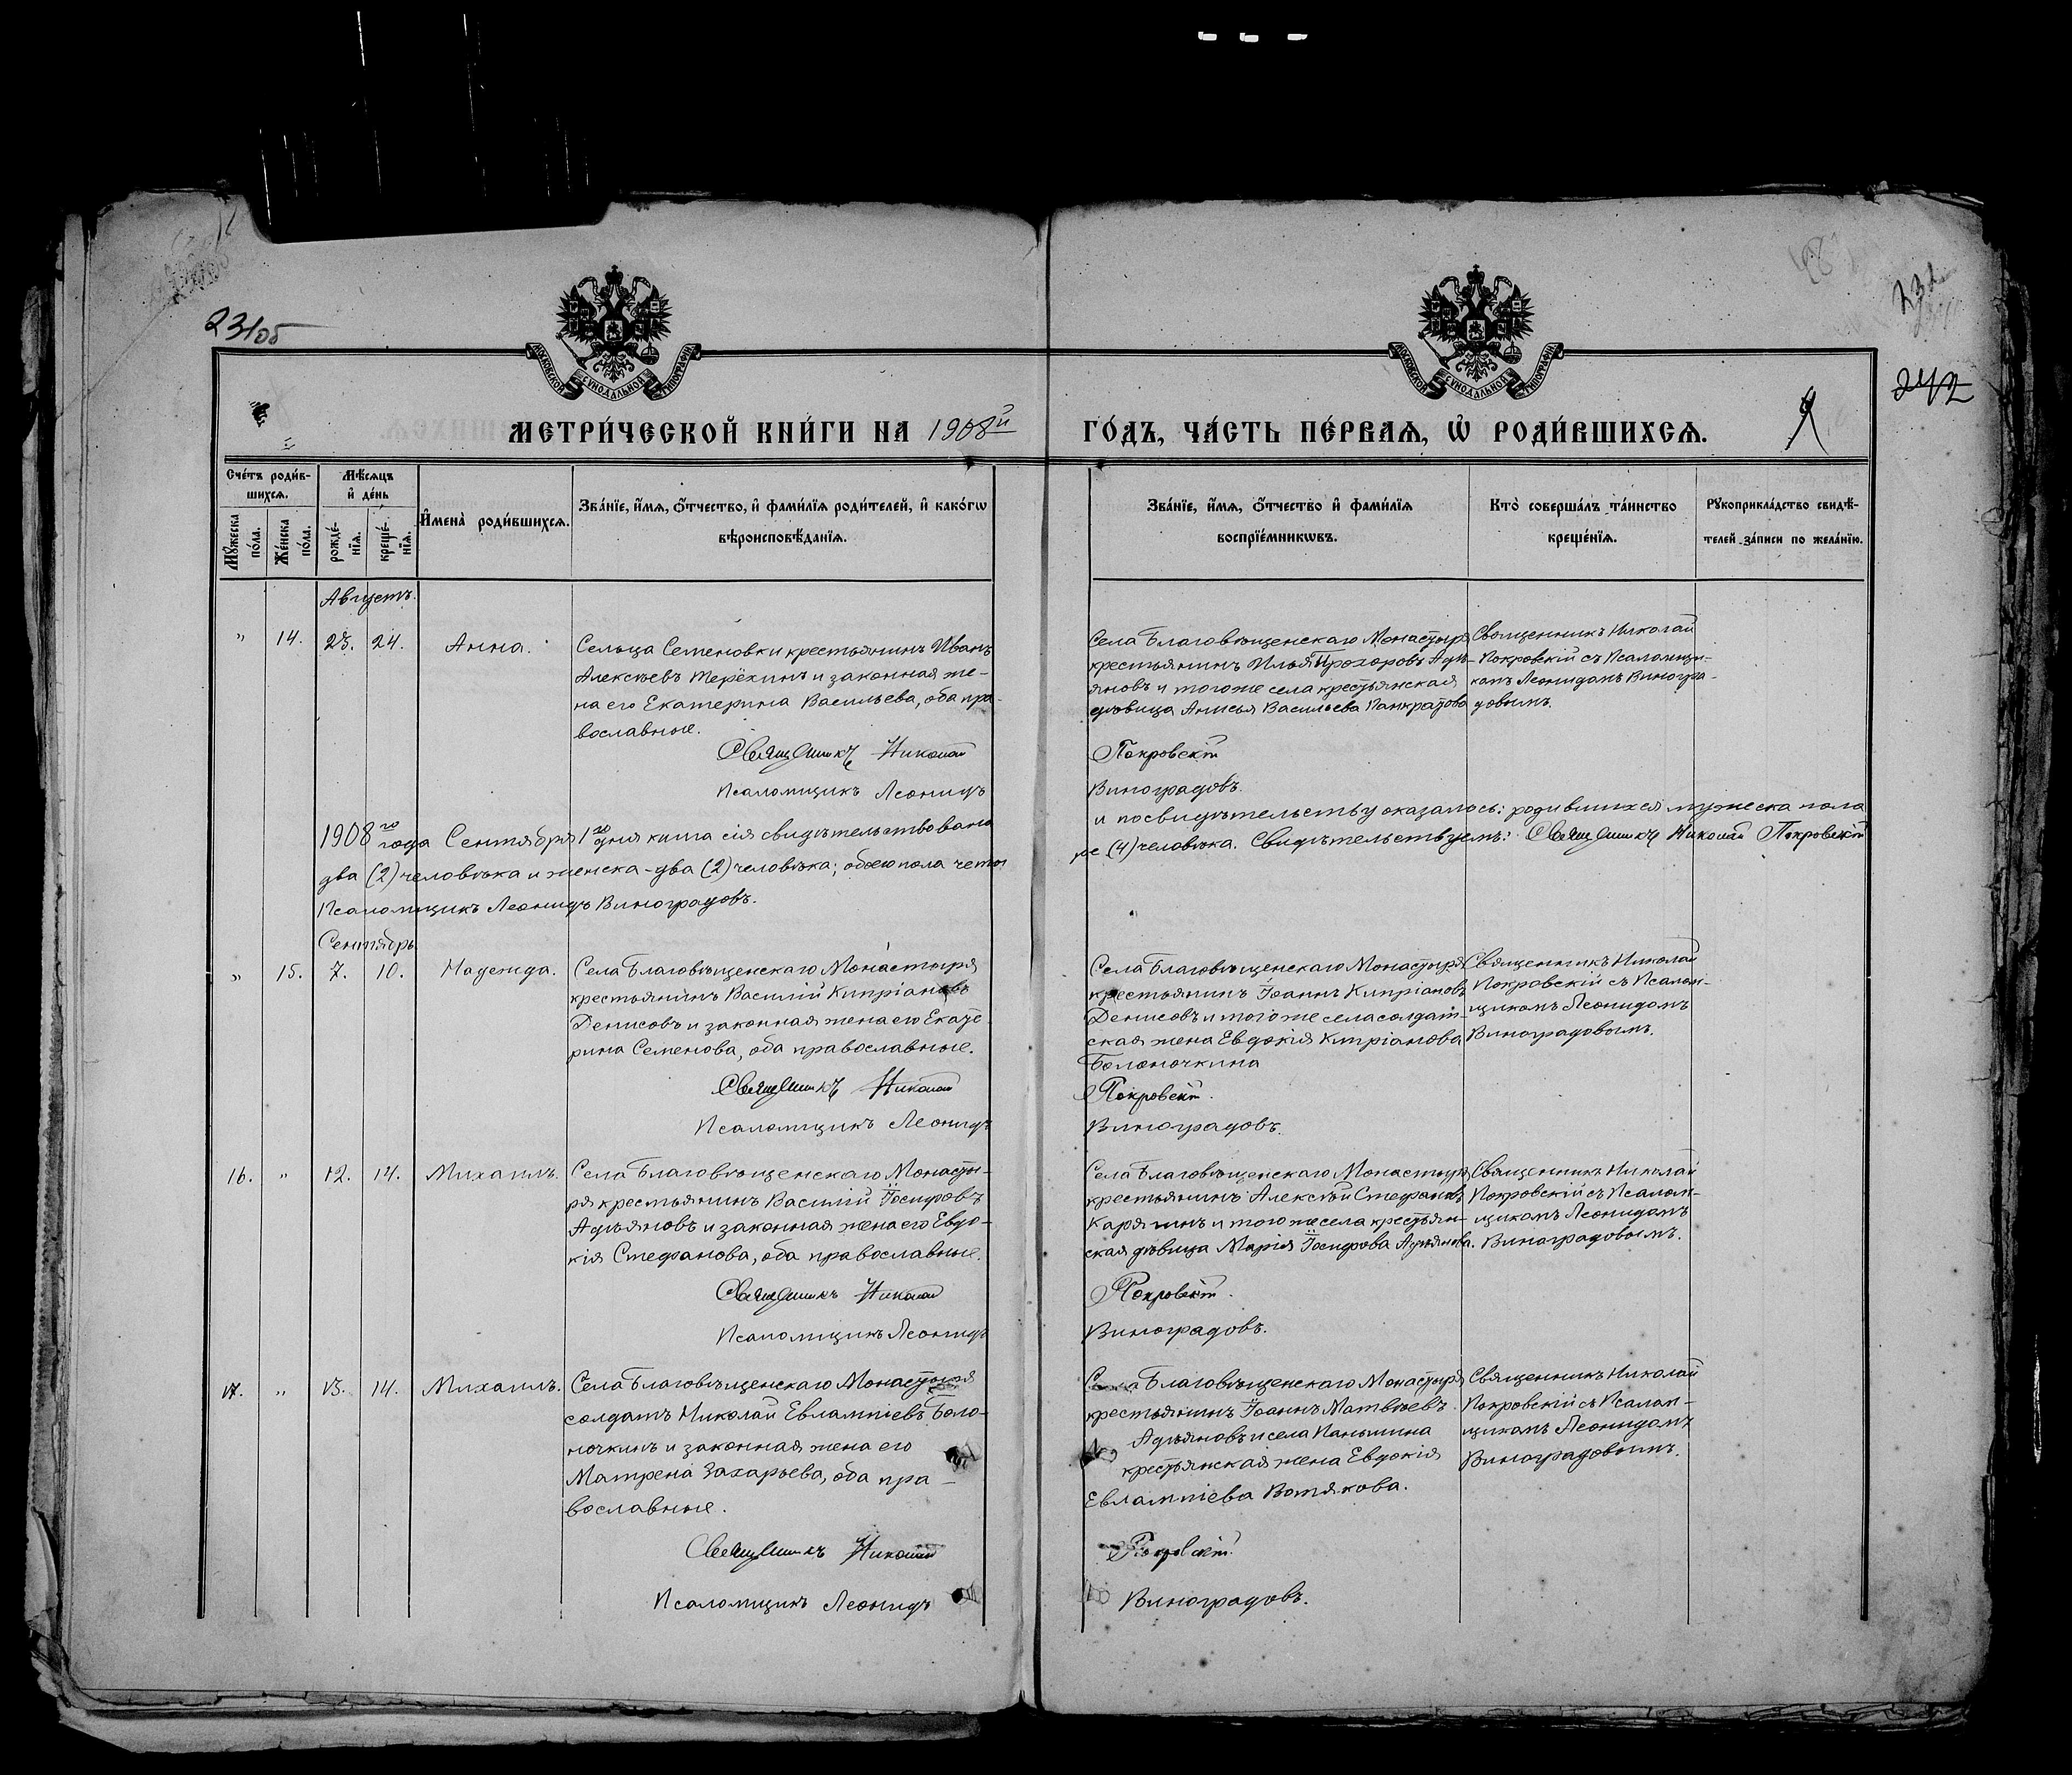 231 об
232
242
МОСКОВСКОЙ СѴНОДАЛЬНОЙ ТИПОГРАФІИ
МОСКОВСКОЙ СѴНОДАЛЬНОЙ ТИПОГРАФІИ
МЕТРИ́ЧЕСКОЙ КНИ́ГИ НА 1908й
ГО́ДЪ, ЧА́СТЬ ПЕ́РВАѦ, Ѡ҆ РОДИ́ВШИХСѦ.
Сче́тъ роди́в-
шихсѧ.
Мꙋ́жеска по́ла.
Же́нска по́ла.
Мѣ́сѧцъ
и҆ де́нь
рожде́-
нїѧ.
креще́-
нїѧ.
И҆мена̀ роди́вшихсѧ.
Зва́нїе, и҆́мѧ, ѻ҆́тчество, и҆ фами́лїѧ роди́телей, и҆ како́гѡ
вѣроисповѣ́данїѧ.
Зва́нїе, и҆́мѧ, ѻ҆́тчество и҆ фами́лїѧ
воспрїе́мникѡвъ.
Кто̀ соверша́лъ та́инство
креще́нїѧ.
Рꙋкоприкла́дство свидѣ́-
телей за́писи по жела́нїю.
Августъ.
" 14. 23. 24. Анна.
Сельца Семеновки крестьянинъ Иванъ
Алексѣевъ Терёхинъ и законная же-
на его Екатерина Васильева, оба пра-
вославные.
Священникъ Николай
Псаломщикъ Леонидъ
Села Благовѣщенскаго Монастыря
крестьянинъ Илья Прохоровъ Адъ-
яновъ и тогоже села крестьянская
дѣвица Анисья Васильева Панкратова
Покровскій
Виноградовъ.
Священникъ Николай
Покровскій съ Псаломщи-
комъ Леонидомъ Виногра-
довымъ.
1908го года Сентября 1го дня книга сія свидѣтельствована
и по свидѣтельству оказалось: родившихся мужеска пола
два (2) человѣка и женска - два (2) человѣка; обоего пола четы
ре (4) человѣка. Свидѣтельствуемъ: Священникъ Николай Покровскій
Псаломщикъ Леонидъ Виноградовъ.
Сентябрь.
" 15. 7. 10. Надежда.
Села Благовѣщенскаго Монастыря
крестьянинъ Василій Кипріановъ
Денисовъ и законная жена его Екате-
рина Семенова, оба православные.
Священникъ Николай
Псаломщикъ Леонидъ
Села Благовѣщенскаго Монастыря
крестьянинъ Іоаннъ Кипріановъ
Денисовъ и тогоже села солдат-
ская жена Евдокія Кипріанова
Болоночкина
Покровскій.
Виноградовъ.
Священникъ Николай
Покровскій съ Псалом-
щикомъ Леонидомъ
Виноградовымъ.
16. " 12. 14. Михаилъ.
Села Благовѣщенскаго Монасты-
ря крестьянинъ Василій Іосифовъ
Адъяновъ и законная жена его Евдо-
кія Стефанова, оба православные.
Священникъ Николай
Псаломщикъ Леонидъ
Села Благовѣщенскаго Монастыря
крестьянинъ Алексѣй Стефановъ
Карягинъ и тогоже села крестьян-
ская дѣвица Марія Іосифова Адъянова.
Покровскій.
Виноградовъ.
Священникъ Николай
Покровскій съ Псалом-
щикомъ Леонидомъ
Виноградовымъ.
17. " 13. 14. Михаилъ.
Села Благовѣщенскаго Монастыря
солдатъ Николай Евлампіевъ Боло-
ночкинъ и законная жена его
Матрена Захарьева, оба пра-
вославные.
Священникъ Николай
Псаломщикъ Леонидъ
Села Благовѣщенскаго Монастыря
крестьянинъ Іоаннъ Матвѣевъ
Адъяновъ и села Паньшина
крестьянская жена Евдокія
Евлампіева Вотякова.
Покровскій.
Виноградовъ.
Священникъ Николай
Покровскій съ Псалом-
щикомъ Леонидомъ
Виноградовымъ.